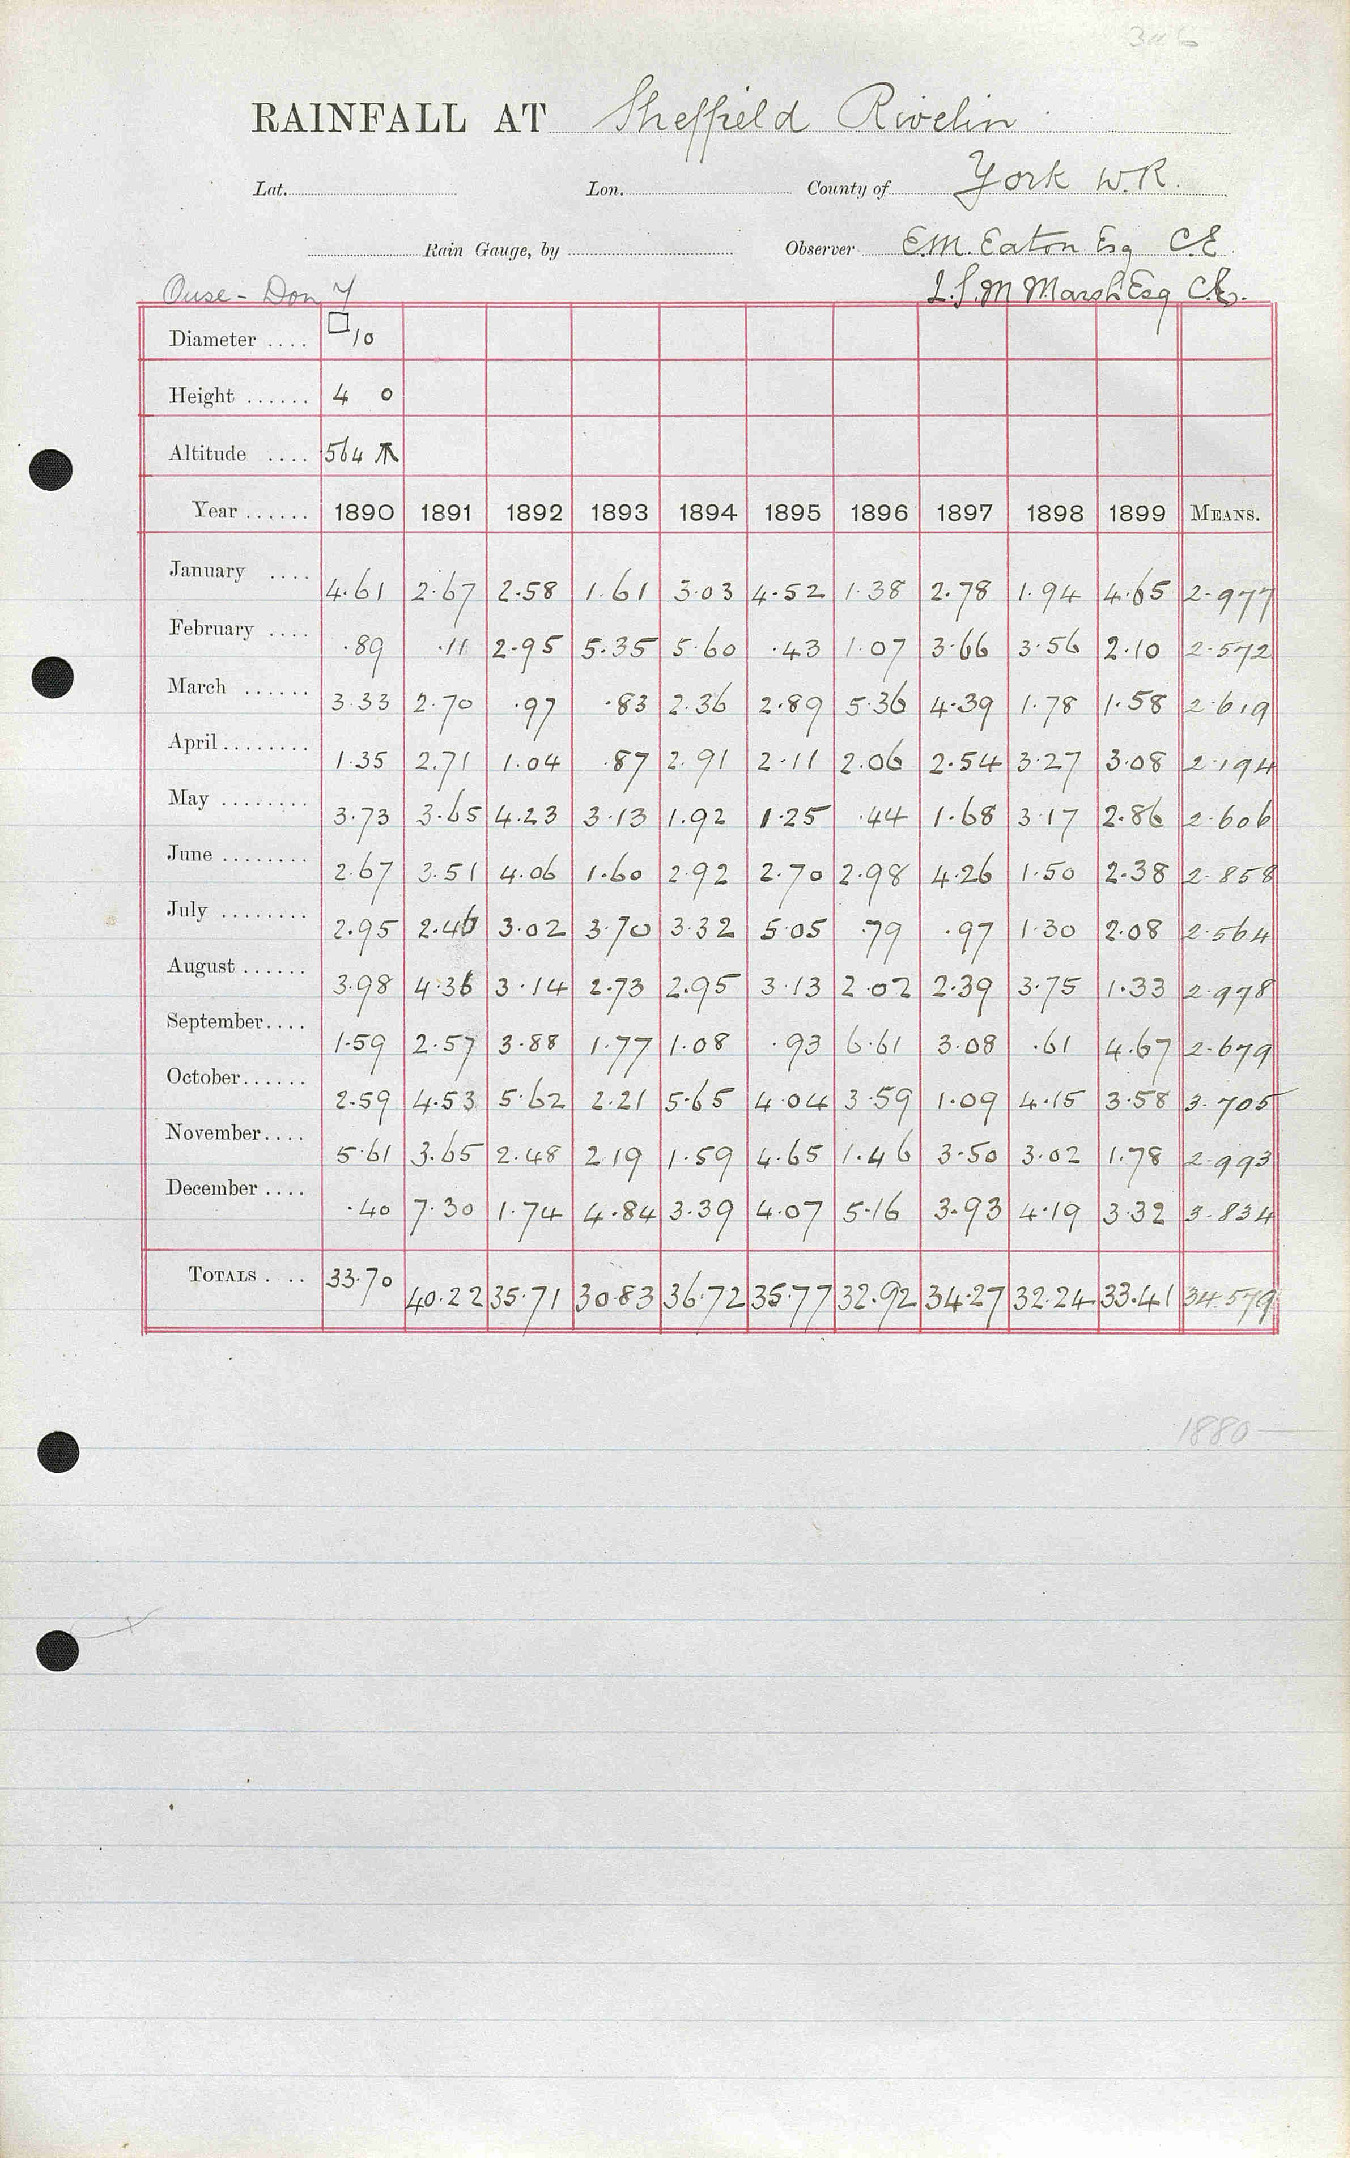 RAINFALL AT Sheffield Rivelin
Lat. Lon. County of York W.R.
Rain Gauge, by Observer E.M. Eaton Esq C.E
Ouse - Don 7 L.S.M Marsh Esq C.E.
Diameter .... □10
Height ...... 4 0
Altitude .... 564 ⚹
Year ...... 1890 1891 1892 1893 1894 1895 1896 1897 1898 1899 MEANS.
January .... 4.61 2.67 2.58 1.61 3.03 4.52 1.38 2.78 1.94 4.65 2.977
February .... .89 .11 2.95 5.35 5.60 .43 1.07 3.66 3.56 2.10 2.572
March ...... 3.33 2.70 .97 .83 2.36 2.89 5.36 4.39 1.78 1.58 2.619
April ........ 1.35 2.71 1.04 .87 2.91 2.11 2.06 2.54 3.27 3.08 2.194
May ........ 3.73 3.65 4.23 3.13 1.92 1.25 .44 1.68 3.17 2.86 2.606
June ........ 2.67 3.51 4.06 1.60 2.92 2.70 2.98 4.26 1.50 2.38 2.858
July ........ 2.95 2.46 3.02 3.70 3.32 5.05 .79 .97 1.30 2.08 2.564
August ...... 3.98 4.36 3.14 2.73 2.95 3.13 2.02 2.39 3.75 1.33 2.978
September .... 1.59 2.57 3.88 1.77 1.08 .93 6.61 3.08 .61 4.67 2.679
October ...... 2.59 4.53 5.62 2.21 5.65 4.04 3.59 1.09 4.15 3.58 3.705
November .... 5.61 3.65 2.48 2.19 1.59 4.65 1.46 3.50 3.02 1.78 2.993
December .... .40 7.30 1.74 4.84 3.39 4.07 5.16 3.93 4.19 3.32 3.834
TOTALS . .. 33.70 40.22 35.71 30.83 36.72 35.77 32.92 34.27 32.24 33.41 34.579
1880 —